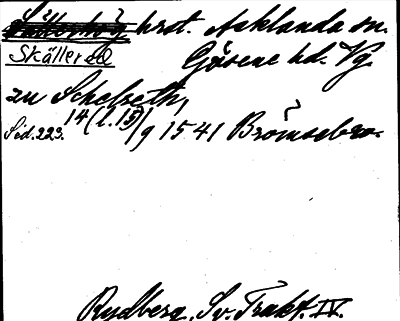 hrdt. Asklanda sn.
Skälleröd Gäsene hd. Vg.
zu Schelreth,
Sid. 223. 14 (l. 15)/9 1541 Brömsebro.
Rydberg, Sv. Trakt. IV.